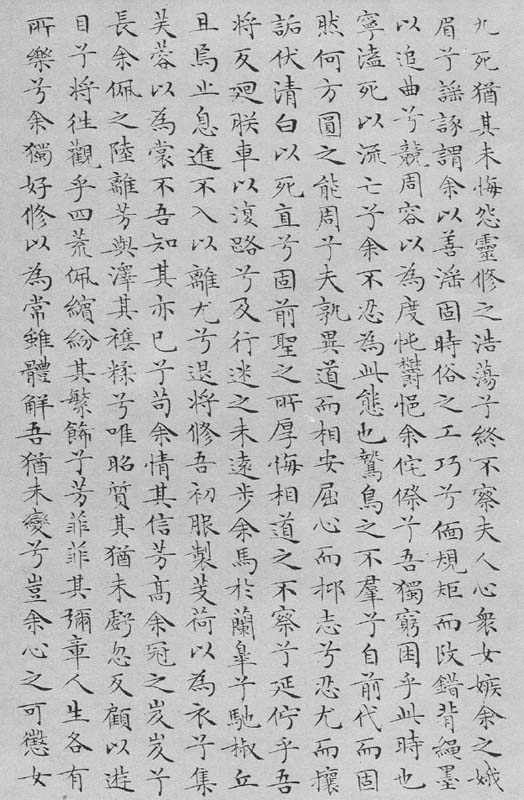 九死猶其未悔怨靈修之浩蕩兮終不察夫人心衆女嫉余之娥
眉兮謡諑謂余以善滛固時俗之工巧兮偭規矩而改錯背繩墨
以追曲兮競周容以為度忳鬱悒余侘傺兮吾獨窮困乎此時也
寧溘死以流亡兮余不忍為此態也鷙鳥之不羣兮自前代而固
然何方圓之能周兮夫孰異道而相安屈心而抑志兮忍尤而攘
詬伏清白以死直兮固前聖之所厚悔相道之不察兮延佇乎吾
將反廻朕車以復路兮及行迷之未遠步余馬於蘭皋兮馳椒丘
且焉止息進不入以離尤兮退將修吾初服製芰荷以為衣兮集
芙蓉以為裳不吾知其亦已兮苟余情其信芳高余冠之岌岌兮
長余佩之陸離芳與澤其襍糅兮唯昭質其猶未虧忽反顧以遊
目兮將往觀乎四荒佩繽紛其繁飾兮芳菲菲其彌章人生各有
所樂兮余獨好修以為常雖體解吾猶未變兮豈余心之可懲女